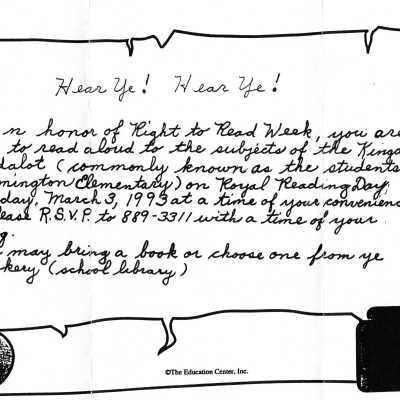 Hear Ye! Hear Ye!
n honor of Right to Read Week, you are
to read aloud to the subjects of the Kingd
dalot (commonly known as the students
mington Elementary) on Royal Reading Day,
day, March 3, 1993 at a time of your convenienc
lease R.S.V.P. to 889-3311 with a time of your
g.
may bring a book or choose one from ye
kery (school library)
©The Education Center, Inc.